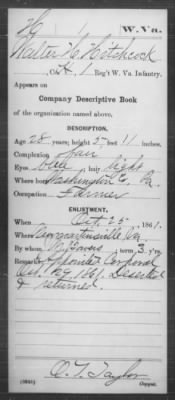 H | 1 | W. Va.
Walter H. Hotchcock
, Co. H, 1 Reg't W. Va. Infantry.
Appears on
Company Descriptive Book
of the organization named above.
DESCRIPTION.
Age 28 years; height 5 feet 11 inches.
Complexion fair
Eyes blue; hair light
Where born Washington Co. Pa.
Occupation Farmer
ENLISTMENT.
When Oct. 25, 1861.
Where Va
By whom; term 3 y'rs.
Remarks: Appointed Corporal
Oct. 29, 1861. Deserted
& returned.
O. T. Taylor
Copyist.